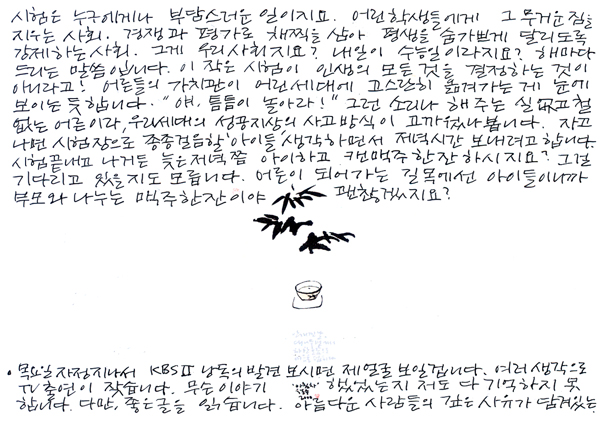 시험은 누구에게나 부담스러운 일이지요. 어린학생들에게 그 무거운 짐을
지우는 사회. 경쟁과 평가로 채찍을 삼아 평생을 숨가쁘게 달리도록
강제하는 사회. 그게 우리사회지요? 내일이 수능일이라지요? 해마다
드리는 말씀입니다. 이 작은 시험이 인생의 모든 것을 결정하는 것이
아니라고! 어른들의 가치관이 어린세대에 고스란히 옮겨가는게 눈에
보이는듯 합니다. "얘, 틈틈이 놀아라!" 그런 소리나 해 주는 실없고 철
없는 어른이라, 우리세대의 성공지상의 사고방식이 고까웠나봅니다. 자고
나면 시험장으로 종종걸음할 '아이들' 생각하면서 저녁시간 보내려고합니다.
시험끝내고 나거든 늦은저녁쯤 아이하고 캔맥주한잔하시지요? 그걸
기다리고 있을지도 모릅니다. 어른이 되어가는 길목에선 아이들이니까
부모와 나누는 맥주한잔이야 괜찮겠지요?
• 목요일 자정지나서 KBSⅡ 낭독의 발견 보시면 제얼굴 보일겁니다. 여러생각으로
TV출연이 잦습니다. 무슨이야기 했었는지 저도 다 기억하지 못
합니다. 다만, 좋은글을 읽습니다. 아름다운 사람들의 깊은 사유가 담겨있는